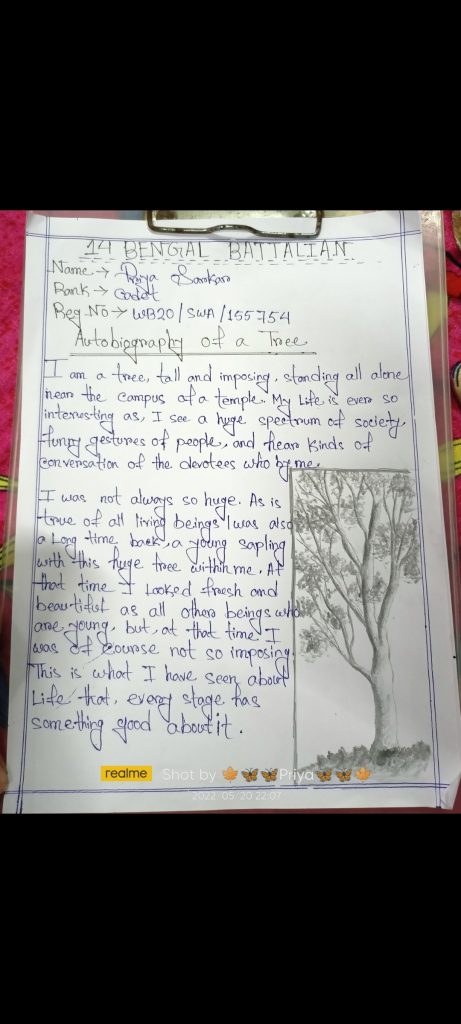 14 BENGAL BATTALIAN
Name → Priya Sarkar
Rank → Cadet
Reg No → WB20/SWA/155754
Autobiography of a Tree
I am a tree, tall and imposing, standing all alone
near the campus of a temple. My Life is ever so
interesting as, I see a huge spectrum of society,
funny gestures of people, and hear kinds of
conversation of the devotees who by me.
I was not always so huge. As is
true of all living beings I was also
a Long time back, a young sapling
with this huge tree within me. At
that time I Looked fresh and
beautiful as all other beings who
are young, but, at that time I
was of course not so imposing.
This is what I have seen about
Life that, every stage has
something good about it.
realme Shot by 🍁🦋🦋Priya🦋🦋🍁
2022/05/20 22:07